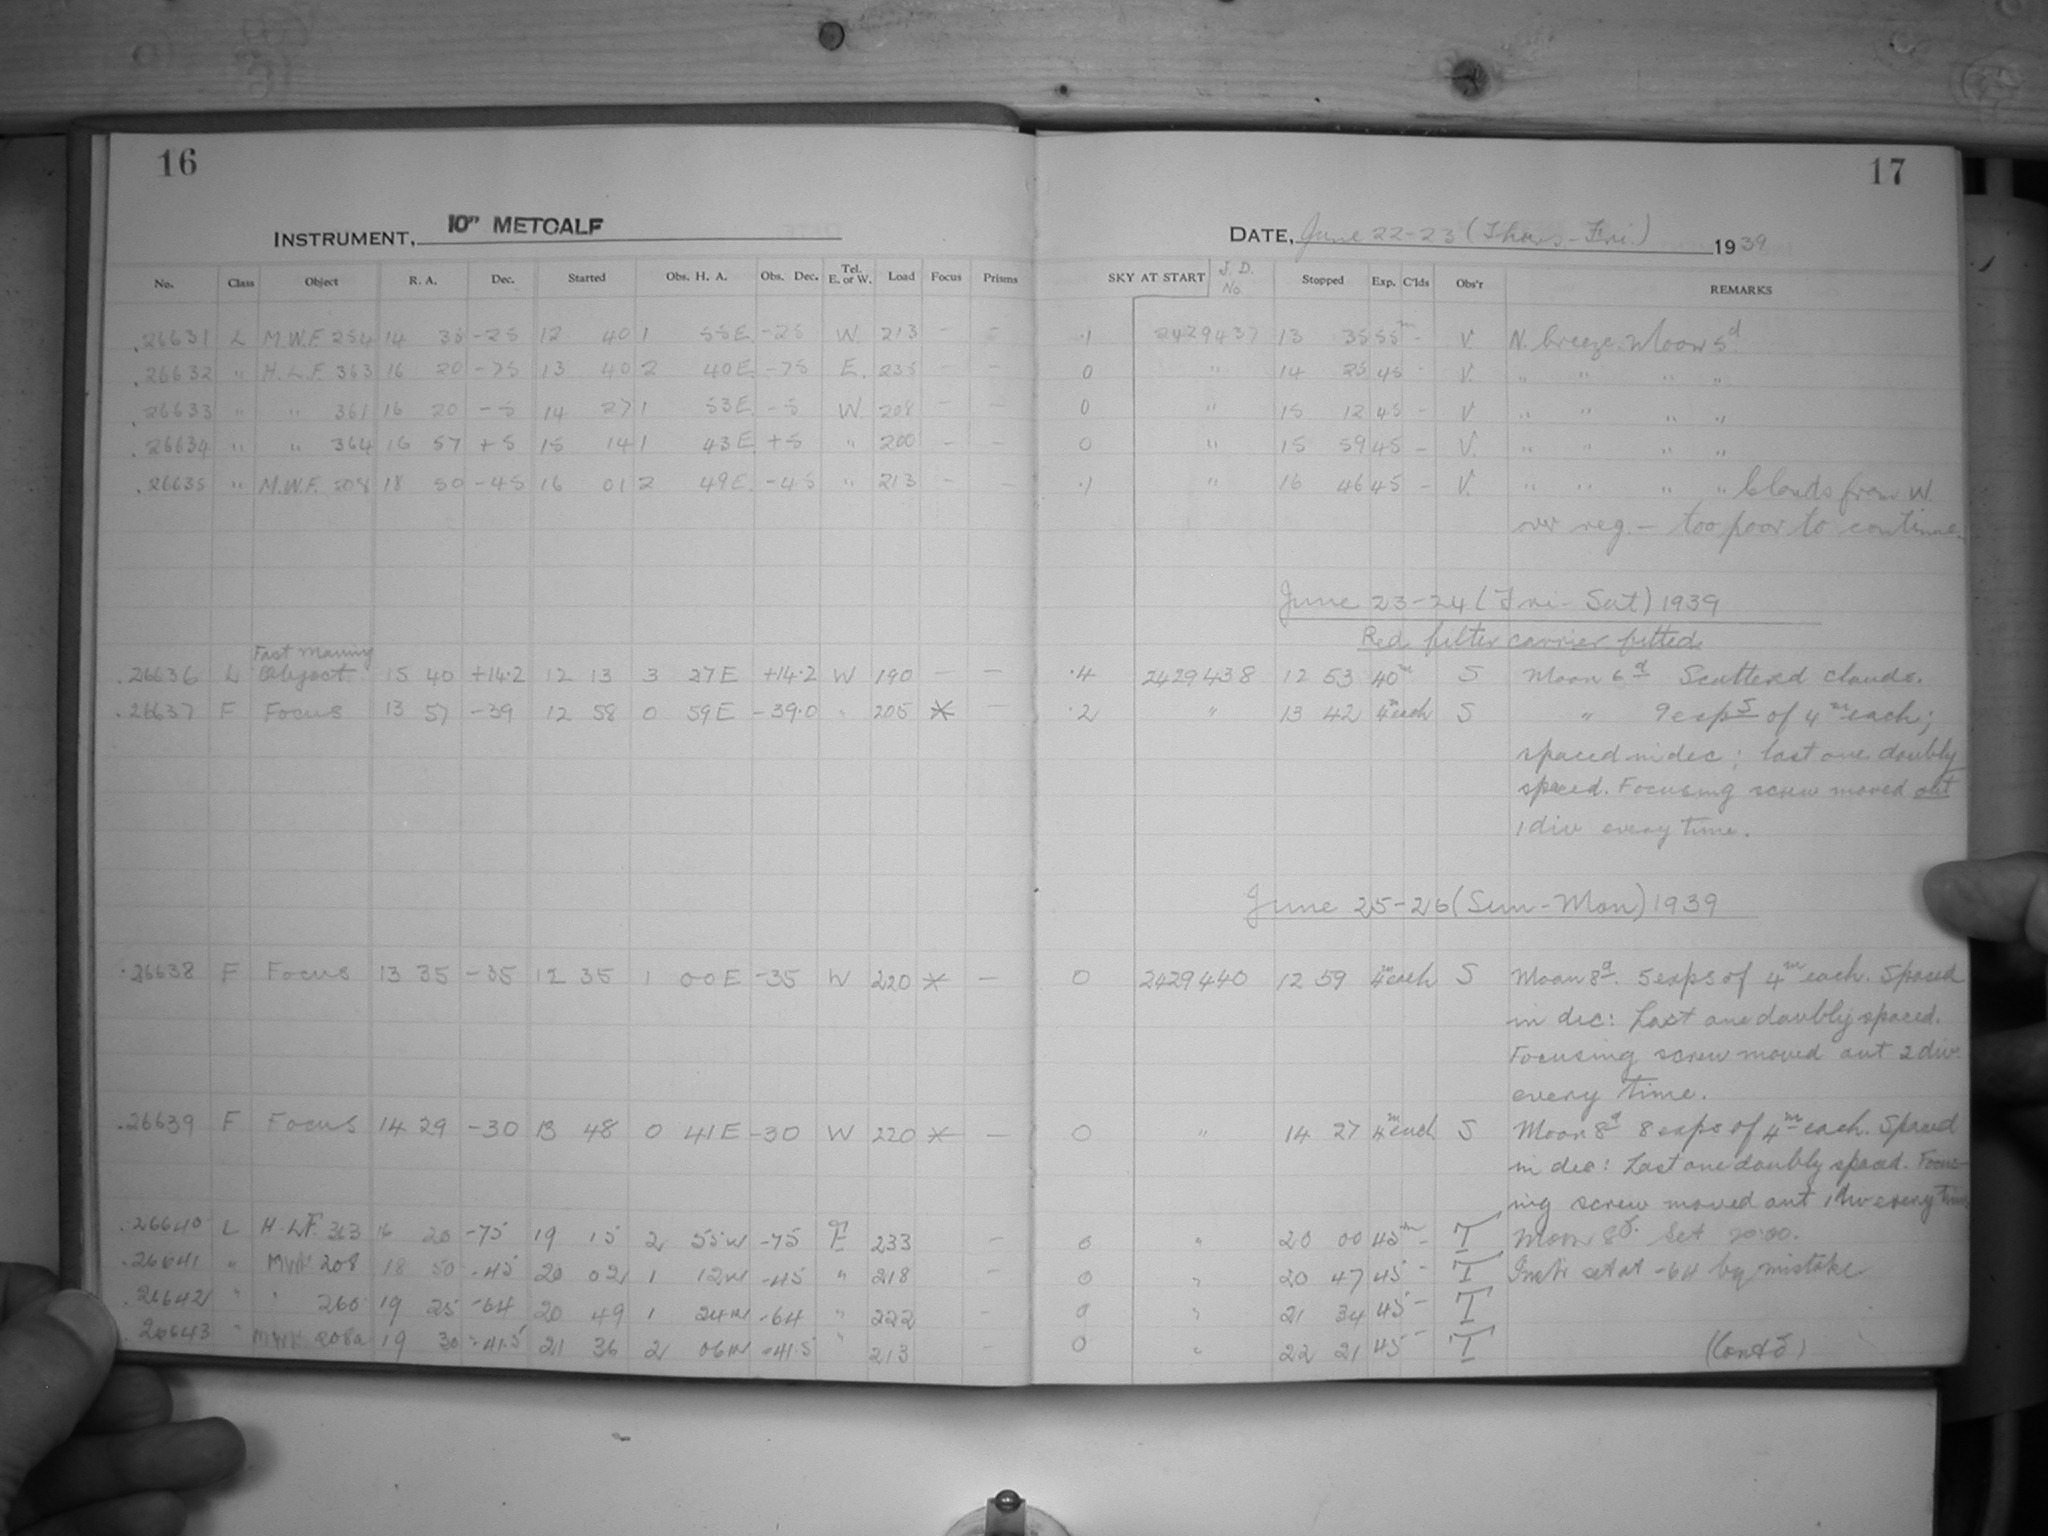 16
INSTRUMENT, 10" METCALF
No. Class Object R. A. Dec. Started Obs. H. A. Obs. Dec. Tel. E. or W. Load Focus Prisms
.26631 L M.W.F. 254 14 35 -25 12 40 1 55 E. -25 W. 213 - -
.26632 " H.L.F. 363 16 20 -75 13 40 2 40 E. -75 E. 235 - -
.26633 " " 361 16 20 -5 14 27 1 53 E. -5 W. 208 - -
.26634 " " 364 16 57 +5 15 14 1 43 E. +5 " 200 - -
.26635 " M.W.F. 208 18 50 -45 16 01 2 49 E. -45 " 213 - -
Fast Moving
.26636 L Object 15 40 +14.2 12 13 3 27 E +14.2 W 190 - -
.26637 F Focus 13 57 -39 12 58 0 59 E -39.0 " 205 * -
.26638 F Focus 13 35 -35 12 35 1 00 E -35 W 220 * -
.26639 F Focus 14 29 -30 13 48 0 41 E -30 W 220 * -
.26640 L H.L.F. 363 16 20 -75 19 15 2 55 W -75 E 233 -
.26641 " MWF 208 18 50 -45 20 02 1 12 W -45 " 218 -
.26642 " " 260 19 25 -64 20 49 1 24 W -64 " 222 -
.26643 " MWF 208a 19 30 -41.5 21 36 2 06 W -41.5 " 213 -
17
DATE, June 22-23 (Thurs-Fri.) 1939
SKY AT START J. D. No. Stopped Exp. C'lds Obs'r REMARKS
.1 2429437 13 35 55m - V. N. breeze. Moon 5d.
0 " 14 25 45 - V. " " " "
0 " 15 12 45 - V " " " "
0 " 15 59 45 - V. " " " "
.1 " 16 46 45 - V. " " " " Clouds from W.
over reg. - too poor to continue.
June 23-24 (Fri-Sat) 1939
Red filter carrier fitted
.4 2429438 12 53 40m S Moon 6d Scattered clouds.
.2 " 13 42 4m each S " 9 exps of 4m each;
spaced in dec; last one doubly
spaced. Focusing screw moved out
1 div every time.
June 25-26 (Sun-Mon) 1939
0 2429440 12 59 4m each S Moon 8d. 5 exps of 4m each. Spaced
in dec: Last one doubly spaced.
Focusing screw moved out 2 div
every time.
0 " 14 27 4m each S Moon 8d 8 exps of 4m each. Spaced
in dec: Last one doubly spaced. Focus-
ing screw moved out 1 div every time.
0 " 20 00 45m - T Moon 8d. Set 20:00.
0 " 20 47 45 - T Instr set at -64 by mistake
0 " 21 34 45 - T
0 " 22 21 45 - T (Contd)